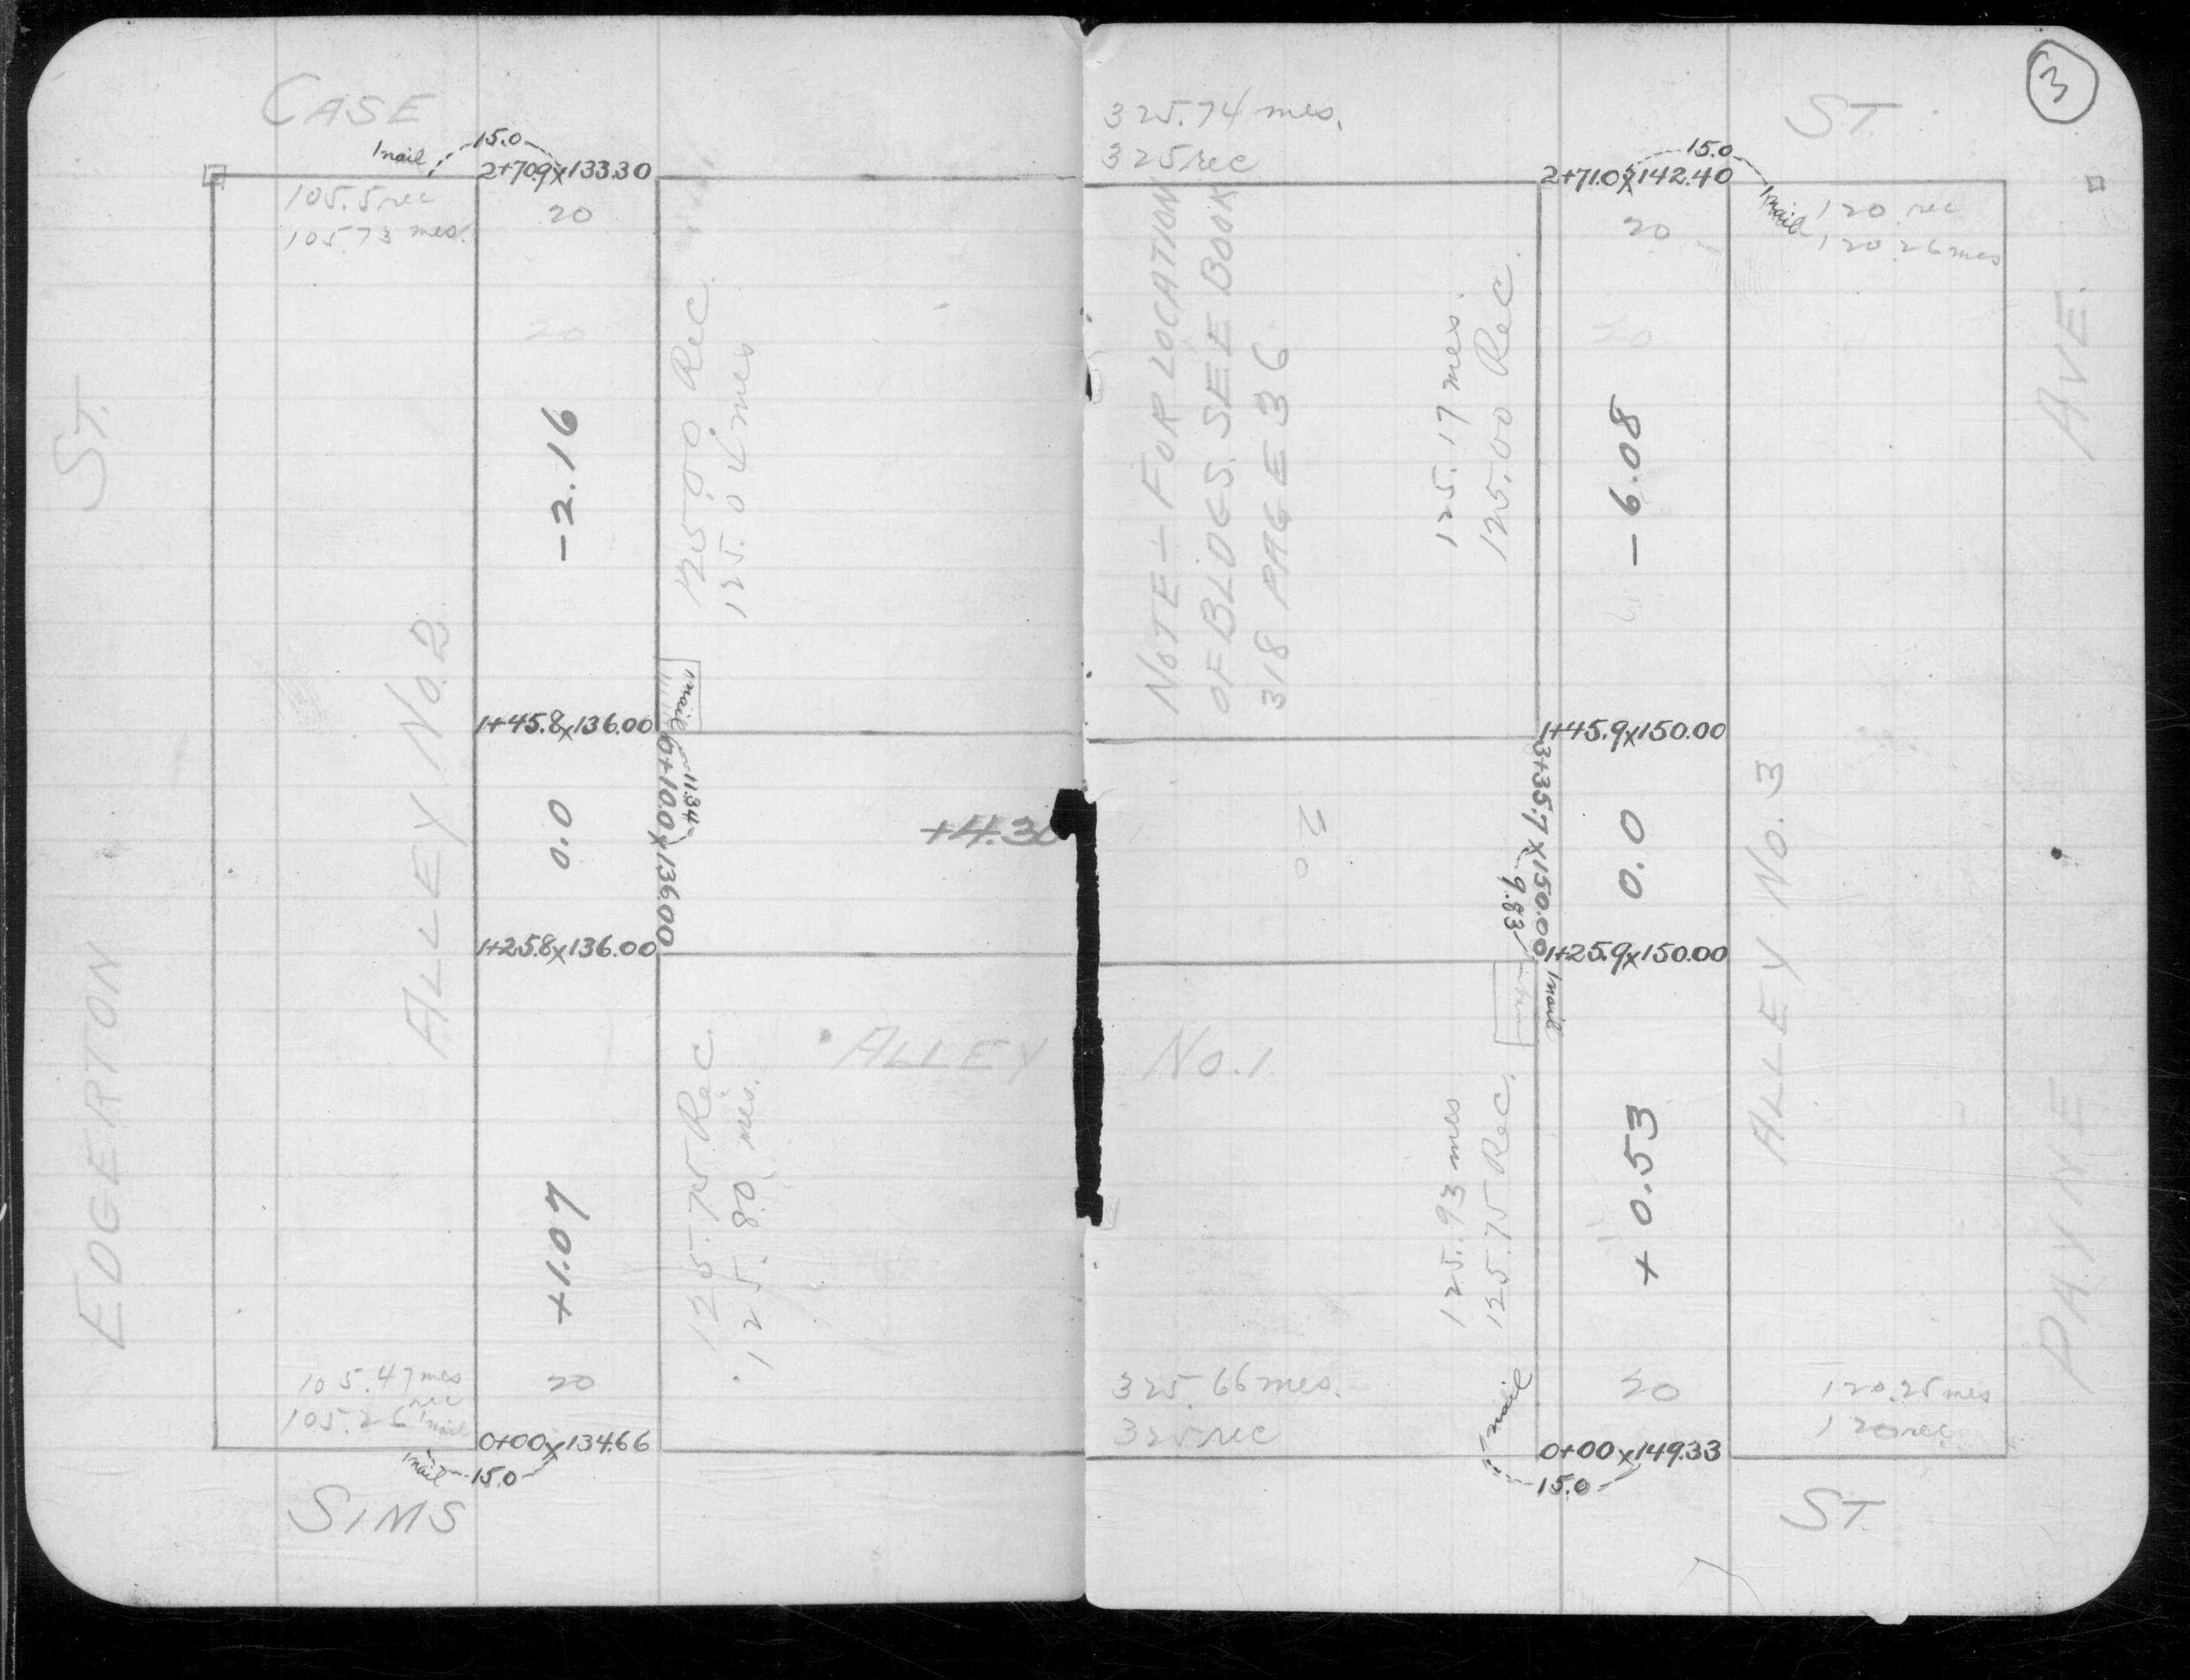 3
CASE
ST.
15.0
1 nail
2+70.9x133.30
105.5 rec
105.73 mes.
20
325.74 mes.
325 rec
15.0
2+71.0x142.40
1 nail
20
120 rec
120.26 mes
ST.
EDGERTON
ALLEY No. 2
-2.16
125.00 Rec.
125.04 mes
NOTE - FOR LOCATION
OF BLDGS. SEE BOOK
318 PAGE 36
125.17 mes.
125.00 Rec.
-6.08
AVE.
PAYNE
1+45.8x136.00
1 nail
11.84
6+10.0x136.00
0.0
1+25.8x136.00
+4.30
20
1+45.9x150.00
3+35.7x150.00
9.83
1 nail
0.0
1+25.9x150.00
ALLEY No. 3
ALLEY No. 1
+1.07
125.75 Rec.
125.80 mes.
125.93 mes
125.75 Rec.
+0.53
105.47 mes
rec
105.25
20
0+00x134.66
1 nail
15.0
325.66 mes.
325 rec
1 nail
20
0+00x149.33
15.0
120.25 mes
120 rec
SIMS
ST.